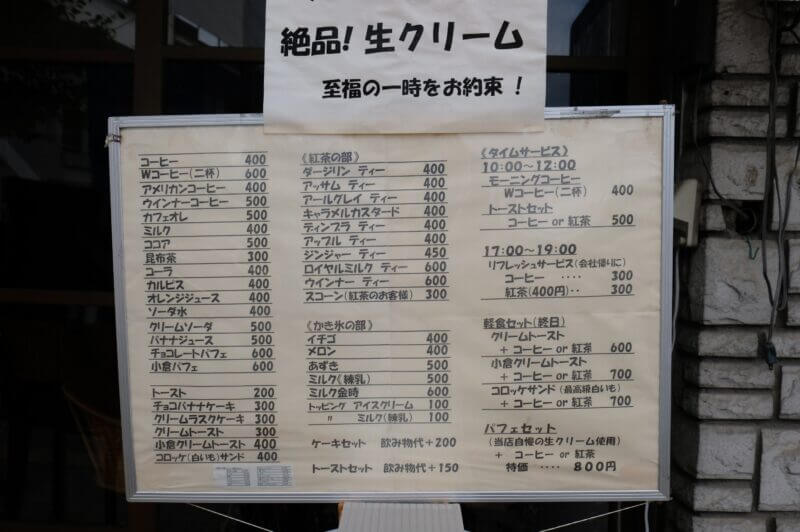 絶品！生クリーム
至福の一時をお約束！
コーヒー 400
Wコーヒー(二杯) 600
アメリカンコーヒー 400
ウインナーコーヒー 500
カフェオレ 500
ミルク 400
ココア 500
昆布茶 300
コーラ 400
カルピス 400
オレンジジュース 400
ソーダ水 400
クリームソーダ 500
バナナジュース 500
チョコレートパフェ 600
小倉パフェ 600
トースト 200
チョコバナナケーキ 300
クリームラスクケーキ 300
クリームトースト 300
小倉クリームトースト 400
コロッケ(白いも)サンド 400
《紅茶の部》
ダージリン ティー 400
アッサム ティー 400
アールグレイ ティー 400
キャラメルカスタード 400
ディンブラ ティー 400
アップル ティー 400
ジンジャー ティー 450
ロイヤルミルク ティー 600
ウインナー ティー 600
スコーン(紅茶のお客様) 300
《かき氷の部》
イチゴ 400
メロン 400
あずき 500
ミルク(練乳) 500
ミルク金時 600
トッピング アイスクリーム 100
〃 ミルク(練乳) 100
ケーキセット 飲み物代＋200
トーストセット 飲み物代＋150
《タイムサービス》
10:00〜12:00
モーニングコーヒー
Wコーヒー(二杯) 400
トーストセット
コーヒー or 紅茶 500
17:00〜19:00
リフレッシュサービス(会社帰りに)
コーヒー ‥‥ 300
紅茶(400円)‥ 300
軽食セット(終日)
クリームトースト
＋ コーヒー or 紅茶 600
小倉クリームトースト
＋ コーヒー or 紅茶 700
コロッケサンド (最高級白いも)
＋ コーヒー or 紅茶 700
パフェセット
(当店自慢の生クリーム使用)
＋ コーヒー or 紅茶
特価 ‥‥ 800円